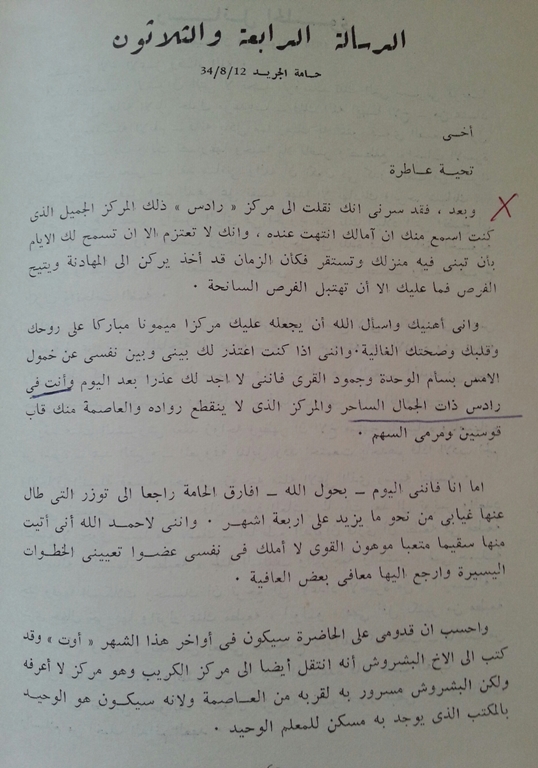 الرسالة الرابعة والثلاثون
حامة الجريد 34/8/12
أخى
تحية عاطرة
وبعد ، فقد سرنى انك نقلت الى مركز « رادس » ذلك المركز الجميل الذى
كنت اسمع منك ان آمالك انتهت عنده ، وانك لا تعتزم الا ان تسمح لك الايام
بأن تبنى فيه منزلك وتستقر فكأن الزمان قد أخذ يركن الى المهادنة ويتيح
الفرص فما عليك الا أن تهتبل الفرص السانحة .
وانى أهنيك واسأل الله أن يجعله عليك مركزا ميمونا مباركا على روحك
وقلبك وصحتك الغالية . واننى اذا كنت اعتذر لك بينى وبين نفسى عن خمول
الامس بسام الوحدة وجمود القرى فاننى لا اجد لك عذرا بعد اليوم وأنت فى
رادس ذات الجمال الساحر والمركز الذى لا ينقطع رواده والعاصمة منك قاب
قوسين ومرمى السهم .
اما انا فاننى اليوم – بحول الله – افارق الحامة راجعا الى توزر التى طال
عنها غيابى من نحو ما يزيد على اربعة اشهر . واننى لاحمد الله أنى أتيت
منها سقيما متعبا موهون القوى لا أملك فى نفسى عضوا تعييننى الخطوات
اليسيرة وارجع اليها معافى بعض العافية .
واحسب ان قدومى على الحاضرة سيكون فى أواخر هذا الشهر « أوت » وقد
كتب الى الاخ البشروش أنه انتقل أيضا الى مركز الكريب وهو مركز لا أعرفه
ولكن البشروش مسرور به لقربه من العاصمة ولانه سيكون هو الوحيد
بالمكتب الذى يوجد به مسكن للمعلم الوحيد .